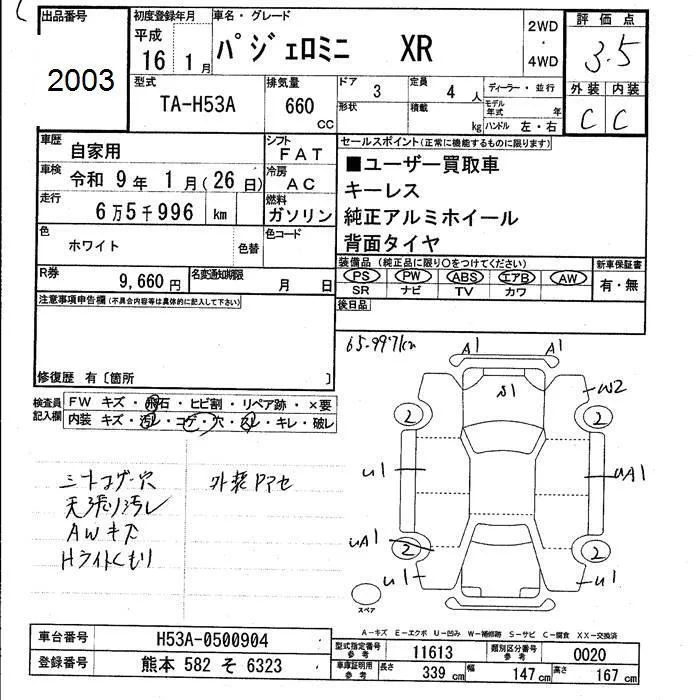 出品番号
2003
初度登録年月
平成
16 1月
車名・グレード
パジェロミニ XR
2WD
・
4WD
評価点
3.5
外装 内装
C C
型式
TA-H53A
排気量
660
CC
ドア
3
定員
4 人
形状
積載
kg
ディーラー・並行
モデル年式 年
ハンドル 左・右
車歴
自家用
シフト
FAT
車検
令和 9年 1月(26日)
冷房
AC
走行
6万5千996 km
燃料
ガソリン
色
ホワイト
色替
色コード
R券
9,660円
名変通知期限
月 日
セールスポイント(正常に機能するものに限ります)
■ユーザー買取車
キーレス
純正アルミホイール
背面タイヤ
装備品(純正品に限り○をつけてください)
PS PW ABS エアB AW
SR ナビ TV カワ
新車保証書
有・無
後日品
注意事項申告欄(不具合内容等は具体的に記入して下さい)
修復歴 有〔箇所 〕
検査員
記入欄
FW キズ・飛石・ヒビ割・リペア跡・×要
内装 キズ・汚レ・コゲ・穴・スレ・キレ・破レ
シートコゲ穴
天張り汚レ
AWキズ
Hライトくもり
外装アアセ
65.997km
A1 A1
W2
2 2
U1
UA1
UA1
2 2
U1 U1
スペア
A-キズ E-エクボ U-凹み W-補修跡 S-サビ C-腐食 XX-交換済
車台番号
H53A-0500904
登録番号
熊本 582 そ 6323
型式指定番号
参考
11613
類別区分番号
参考
0020
車庫証明用
参考
長さ
339 cm
幅
147 cm
高さ
167 cm